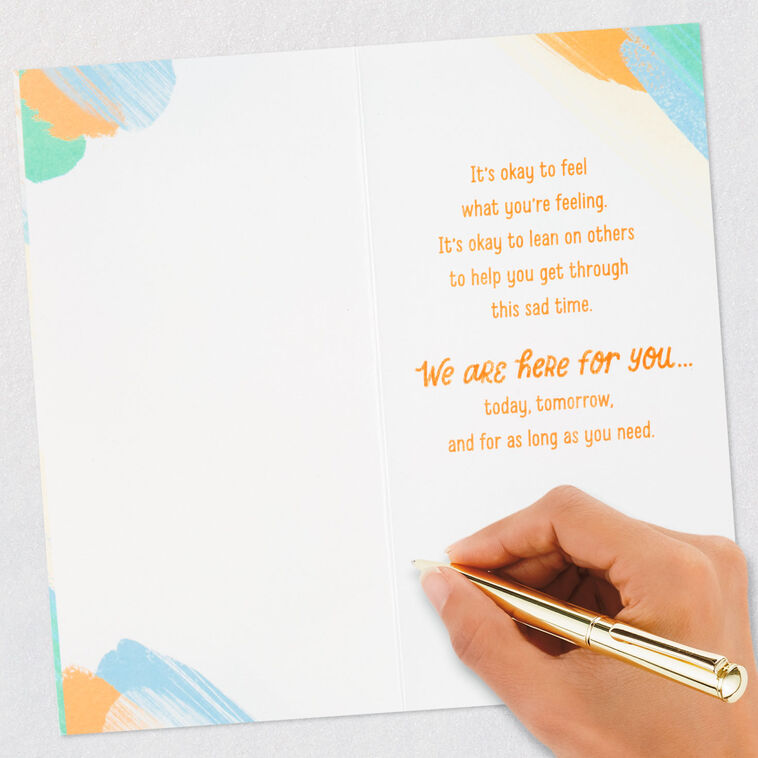 It's okay to feel
what you're feeling.
It's okay to lean on others
to help you get through
this sad time.
We are here for you...
today, tomorrow,
and for as long as you need.